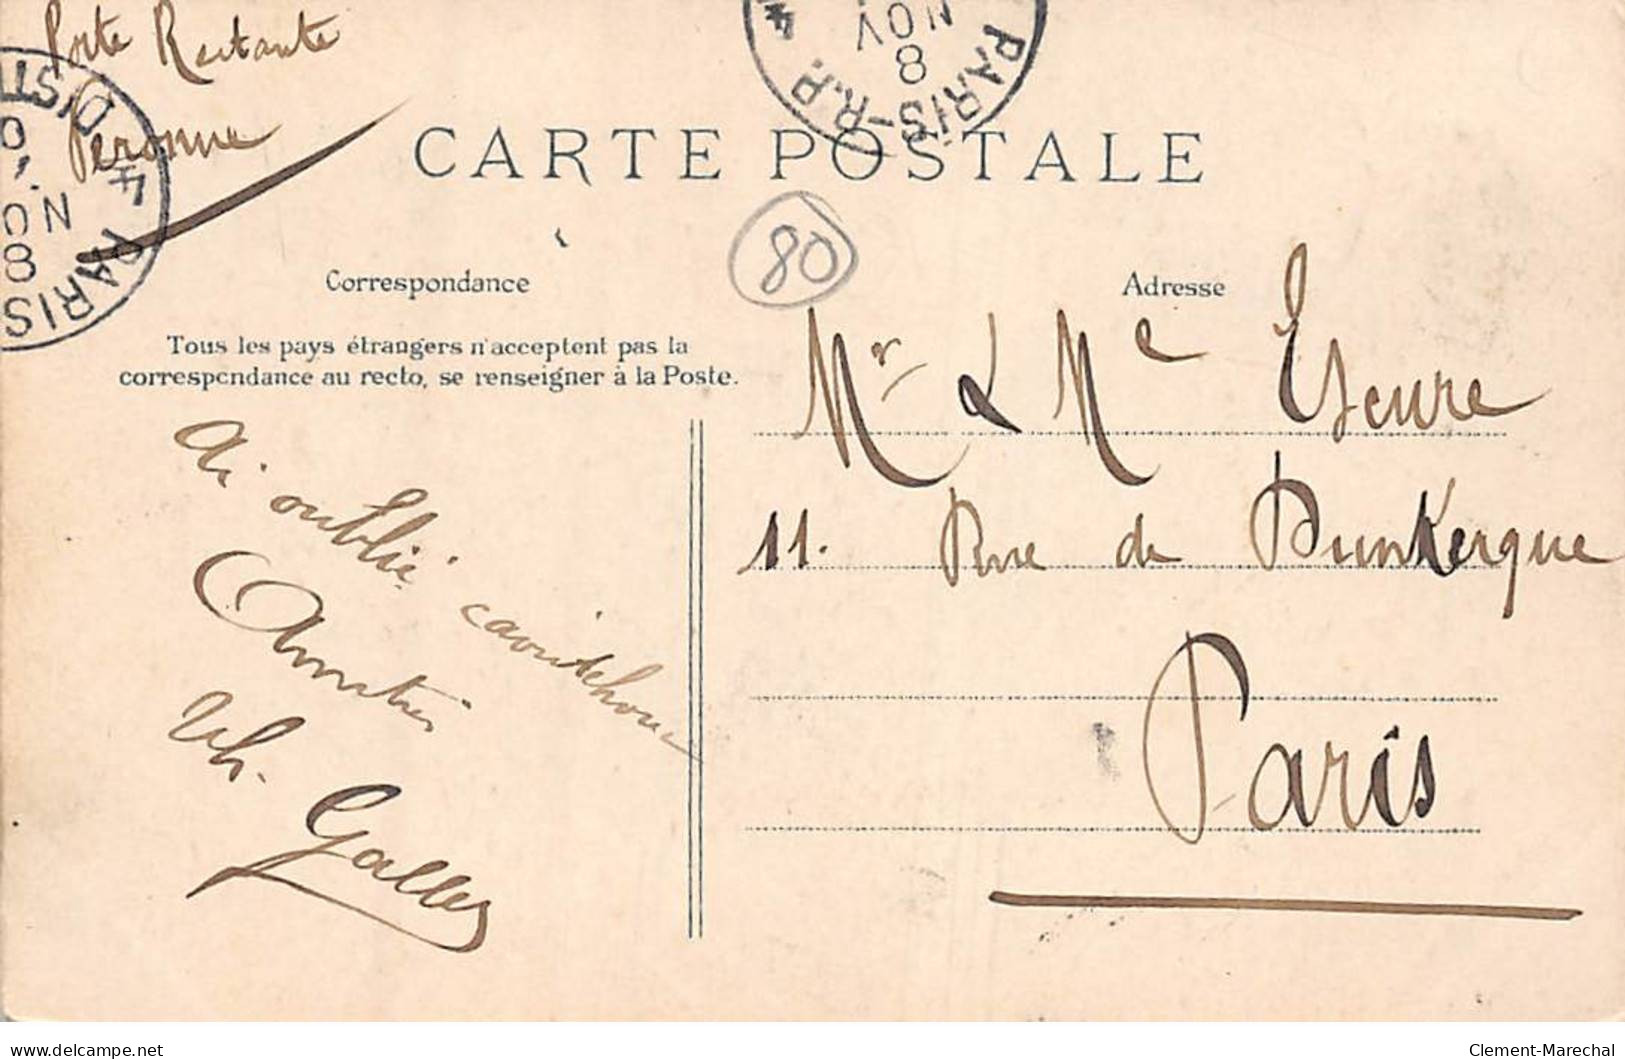 Poste Restante
Péronne
PARIS DIST
8
NO
PARIS-R.P.
8
NOV
CARTE POSTALE
80
Correspondance
Adresse
Tous les pays étrangers n'acceptent pas la
correspondance au recto, se renseigner à la Poste.
Ai oublié caoutchouc
Amitiés
Gallet
Mr & Me Escure
11. Rue de Dunkerque
Paris
delcampe.net
Clement-Marechal